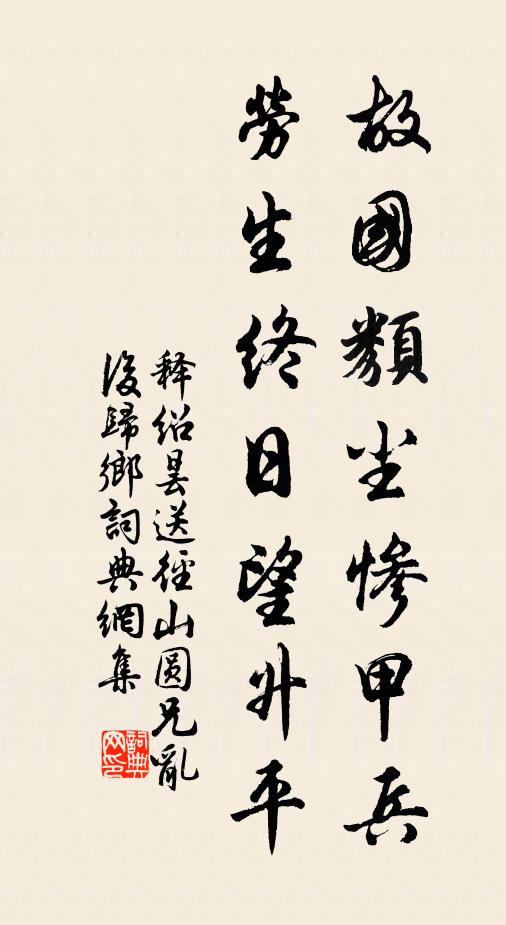 故國類坐慘甲兵
勞生終日望升平
释绍曇送徑山圓兄亂
後歸鄉詞典網集
詞典
网印